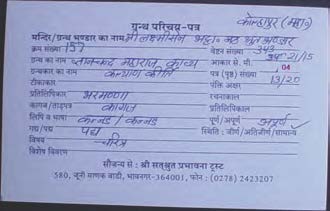 ग्रन्थ परिचय-पत्र
कोल्हापुर (महा०)
मन्दिर/ग्रन्थ भण्डार का नाम श्री लक्ष्मीसेन भट्टा. मठ श्रुत भण्डार
क्रम संख्या 157 वेष्टन संख्या 343
ग्रन्थ का नाम महाराज काव्य आकार से.मी. 21/15
ग्रन्थकार का नाम कल्याण कीर्ति पत्र (पृष्ठ) संख्या 04
टीकाकार पंक्ति अक्षर 13/20
प्रतिलिपिकार भरमण्णा रचनाकाल
कागज/ताड़पत्र कागज प्रतिलिपिकाल
लिपि व भाषा कन्नड / कन्नड पूर्ण/अपूर्ण अपूर्ण
गद्य/पद्य पद्य स्थिति : जीर्ण/अतिजीर्ण/सामान्य
विषय चरित्र
विशेष विवरण
सौजन्य से : श्री सत्श्रुत प्रभावना ट्रस्ट
580, जूनी माणक वाडी, भावनगर-364001, फोन : (0278) 2423207